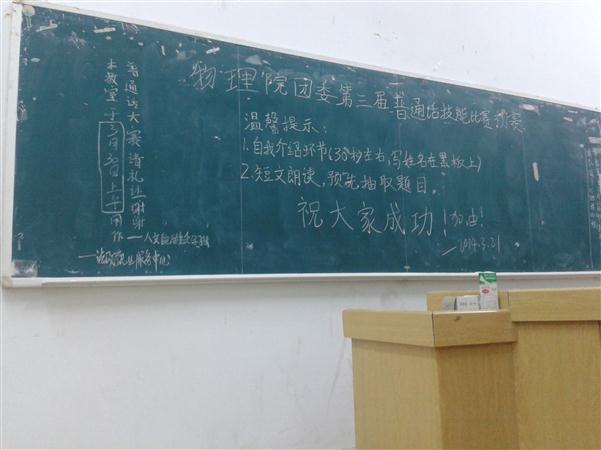 物理院团委第三届普通话技能比赛初赛
温馨提示:
1.自我介绍环节(30秒左右,写姓名在黑板上)
2.短文朗读,预先抽取题目。
祝大家成功!加油!
—2014.3.21
本教室于3月30日上午用作
普通话大赛请礼让,谢谢